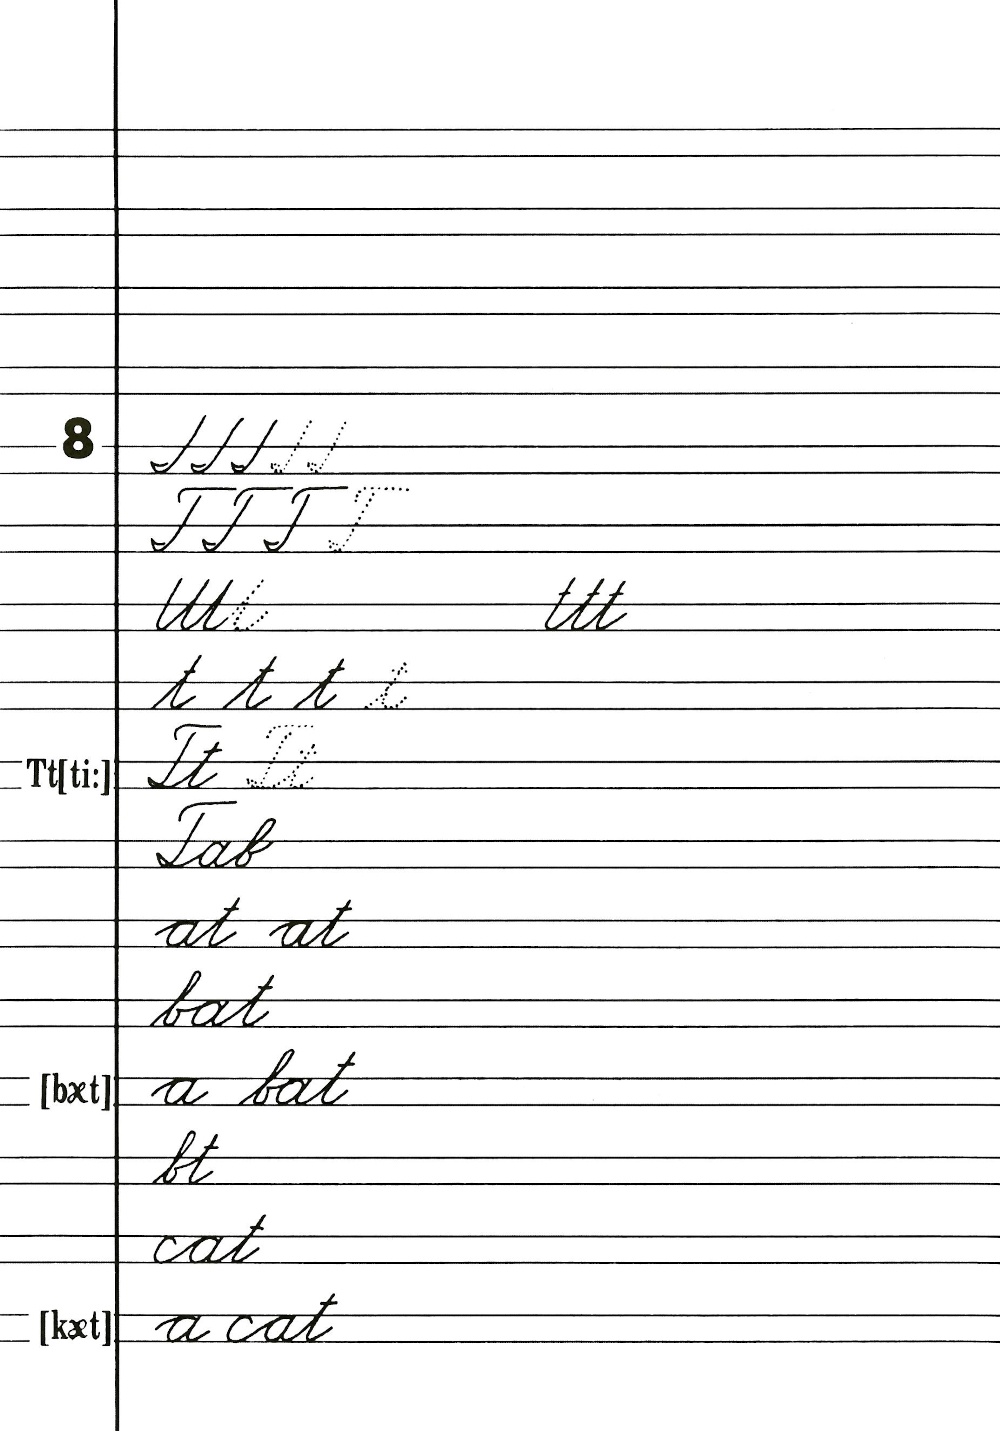 8
T T T T
t t t t
Tt[ti:] Tt Tt
Tab
at at
bat
[bæt] a bat
bt
cat
[kæt] a cat